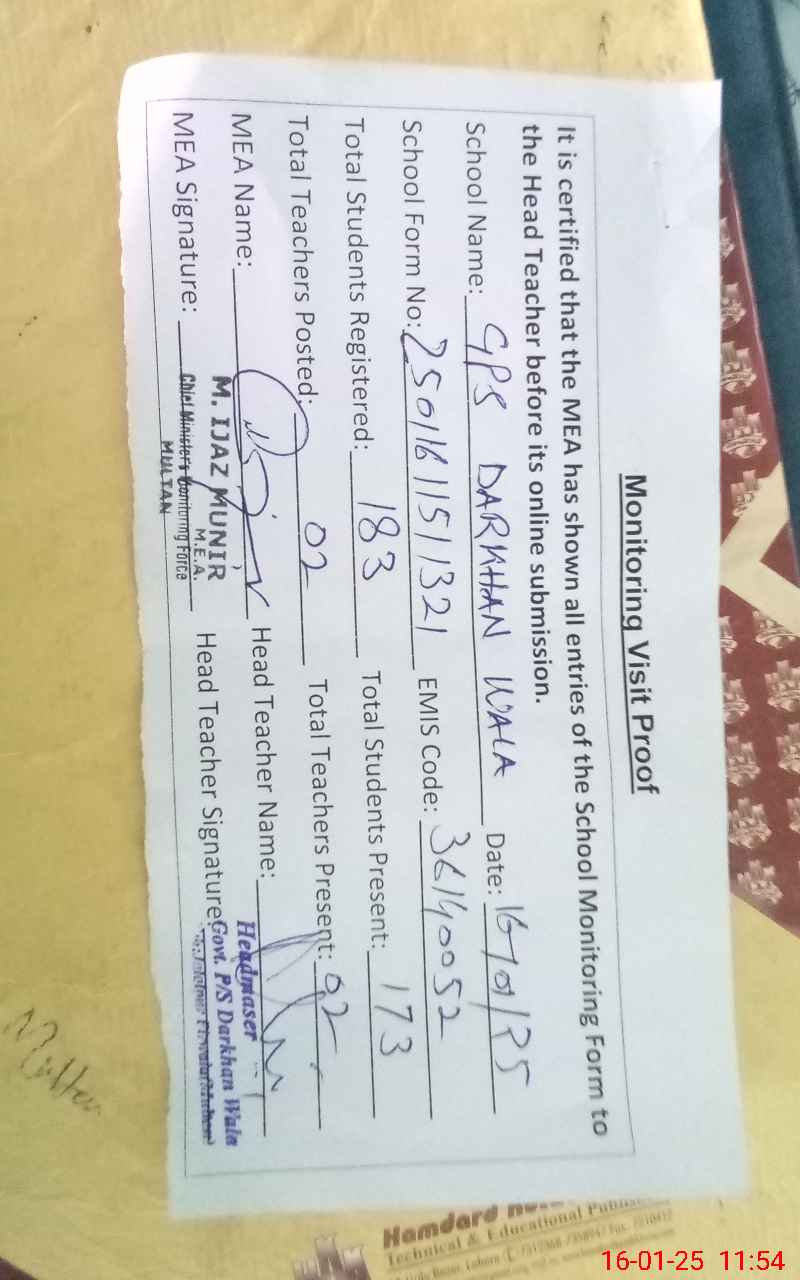 Monitoring Visit Proof
It is certified that the MEA has shown all entries of the School Monitoring Form to
the Head Teacher before its online submission.
School Name: GPS DARKHAN WALA Date: 16/01/25
School Form No: 250116115/1321 EMIS Code: 36140052
Total Students Registered: 183 Total Students Present: 173
Total Teachers Posted: 02 Total Teachers Present: 02
MEA Name: Head Teacher Name:
M. IJAZ MUNIR
M.E.A.
MEA Signature: Head Teacher Signature:
Chief Minister's Monitoring Force
MULTAN
Headmaser
Govt. P/S Darkhan Wala
Hamdard
Technical & Educational
16-01-25 11:54